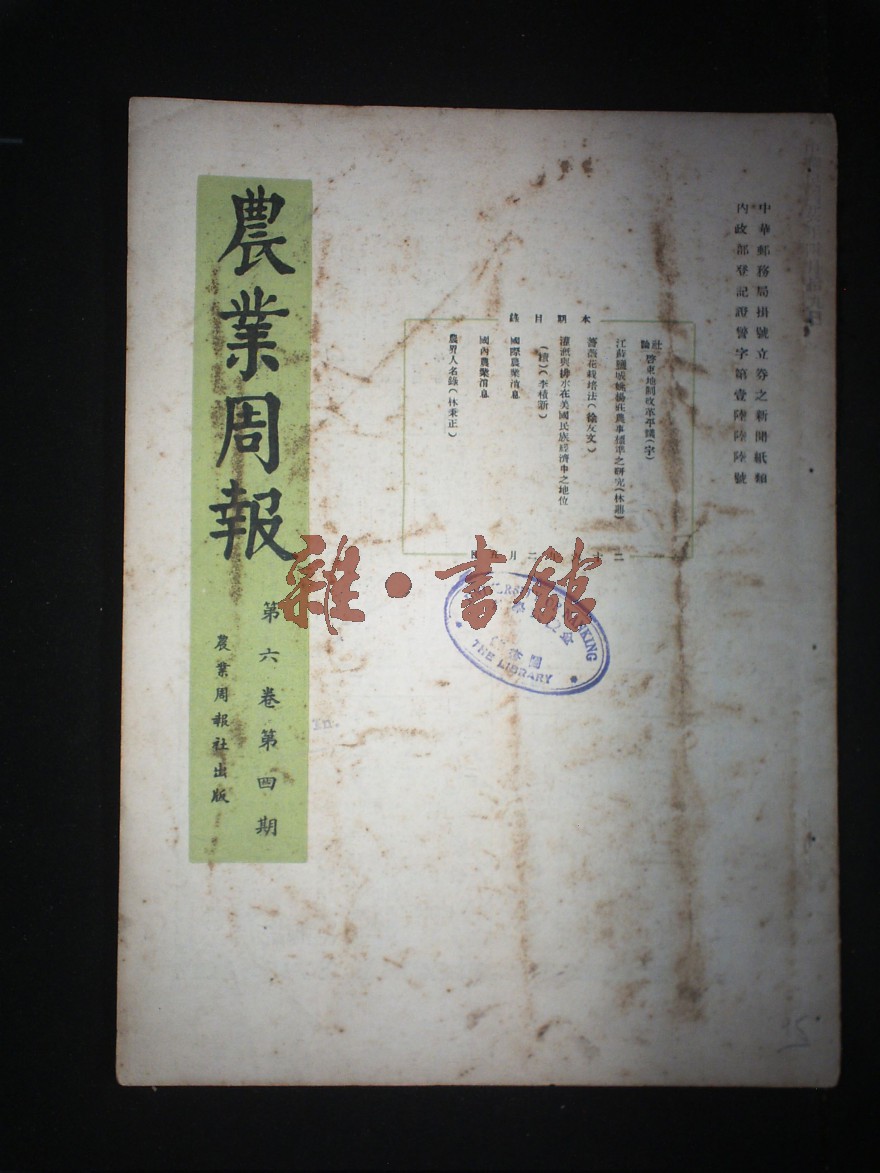 中華郵務局掛號立券之新聞紙類
內政部登記證警字第壹陸陸陸號
本期目錄
社論 啓東地制改革平議(字)
江蘇鹽城 農事標準之研究(林
薔薇花栽培法(徐友文)
灌漑與排水在美國民族經濟中之地位
(續)(李積新)
國際農業消息
國內農業消息
農界人名錄(林秉正)
農業周報
第六卷第四期
農業周報社出版
雜·書館
KING
THE LIBRARY
In.